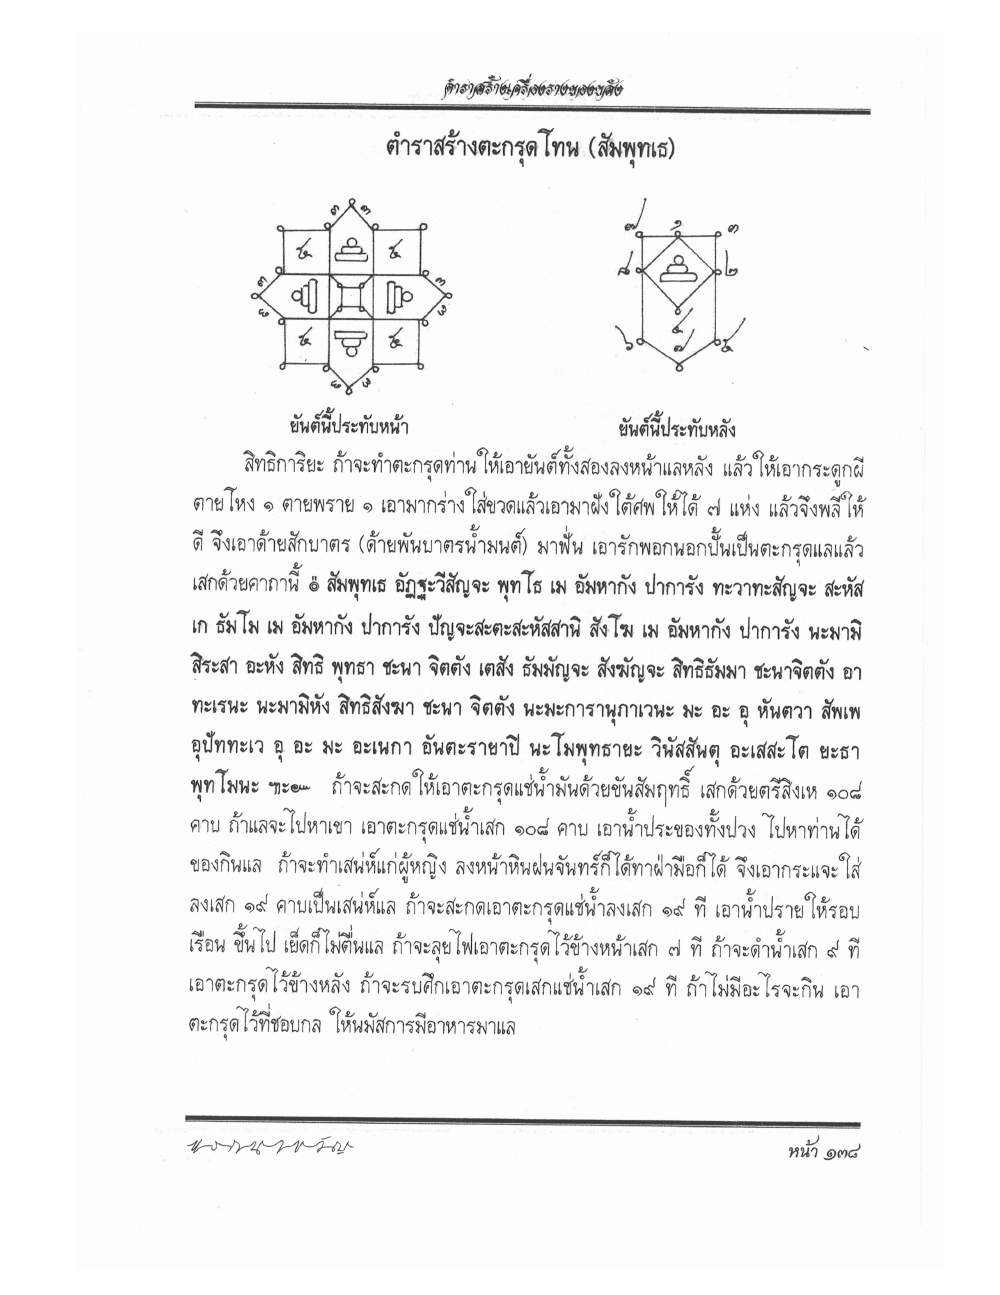 ตำราสร้างเครื่องรางของขลัง
ตำราสร้างตะกรุดโทน (สัมพุทเธ)
๓ ๓
๓ ๓
๓ ๓
๓ ๓
๗ ๑ ๓
๘ ๒
๕
๖ ๗ ๕
ยันต์นี้ประทับหน้า ยันต์นี้ประทับหลัง
สิทธิการิยะ ถ้าจะทำตะกรุดท่านให้เอายันต์ทั้งสองลงหน้าแลหลัง แล้วให้เอากระดูกผี
ตายโหง ๑ ตายพราย ๑ เอามากร่างใส่ขวดแล้วเอามาฝังใต้ศพให้ได้ ๗ แห่ง แล้วจึงพลีให้
ดี จึงเอาด้ายสักบาตร (ด้ายพันบาตรน้ำมนต์) มาฟั่น เอารักพอกนอกปั้นเป็นตะกรุดแลแล้ว
เสกด้วยคาถานี้ ๏ สัมพุทเธ อัฏฐะวีสัญจะ พุทโธ เม อัมหากัง ปาการัง ทะวาทะสัญจะ สะหัส
เก ธัมโม เม อัมหากัง ปาการัง ปัญจะสะตะสะหัสสานิ สังโฆ เม อัมหากัง ปาการัง นะมามิ
สิระสา อะหัง สิทธิ พุทธา ชะนา จิตตัง เตสัง ธัมมัญจะ สังฆัญจะ สิทธิธัมมา ชะนาจิตตัง อา
ทะเรนะ นะมามิหัง สิทธิสังฆา ชะนา จิตตัง นะมะการานุภาเวนะ มะ อะ อุ หันตวา สัพเพ
อุปัททะเว อุ อะ มะ อะเนกา อันตะรายาปิ นะโมพุทธายะ วินัสสันตุ อะเสสะโต ยะธา
พุทโมนะ ฯะ๛ ถ้าจะสะกดให้เอาตะกรุดแช่น้ำมันด้วยขันสัมฤทธิ์ เสกด้วยตรีสิงเห ๑๐๘
คาบ ถ้าแลจะไปหาเขา เอาตะกรุดแช่น้ำเสก ๑๐๘ คาบ เอาน้ำประของทั้งปวง ไปหาท่านได้
ของกินแล ถ้าจะทำเสน่ห์แก่ผู้หญิง ลงหน้าหินฝนจันทร์ก็ได้ทาฝ่ามือก็ได้ จึงเอากระแจะใส่
ลงเสก ๑๙ คาบเป็นเสน่ห์แล ถ้าจะสะกดเอาตะกรุดแช่น้ำลงเสก ๑๙ ที เอาน้ำปรายให้รอบ
เรือน ขึ้นไป เย็ดก็ไม่ตื่นแล ถ้าจะลุยไฟเอาตะกรุดไว้ข้างหน้าเสก ๗ ที ถ้าจะดำน้ำเสก ๙ ที
เอาตะกรุดไว้ข้างหลัง ถ้าจะรบศึกเอาตะกรุดเสกแช่น้ำเสก ๑๙ ที ถ้าไม่มีอะไรจะกิน เอา
ตะกรุดไว้ที่ชอบกล ให้นมัสการมีอาหารมาแล
หน้า ๑๓๘